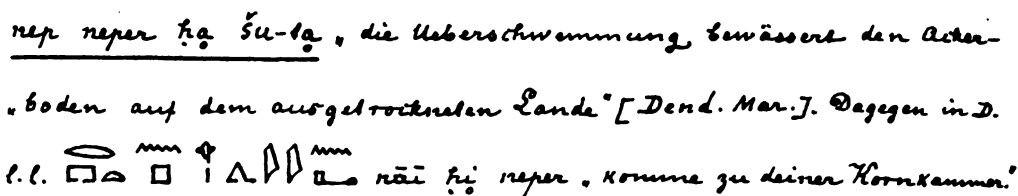 nep neper ḥạ šu-tạ „die Ueberschwemmung, bewässert den Acker-
„boden auf dem ausgetrockneten Lande“ [Dend. Mar.]. Dagegen in D.
l.l. nāī ḥi neper „komme zu deiner Kornkammer.“